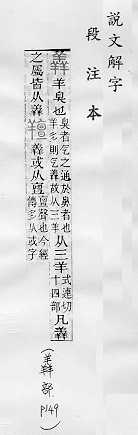 說文解字
段注本
羴 羊臭也 臭者气之通於鼻者也
羊多則气羴故从三羊 从三羊 式連切
十四部 凡羴
之屬皆从羴 羶 羴或从亶 亶聲也今經
傳多从或字
(羴部 P149)